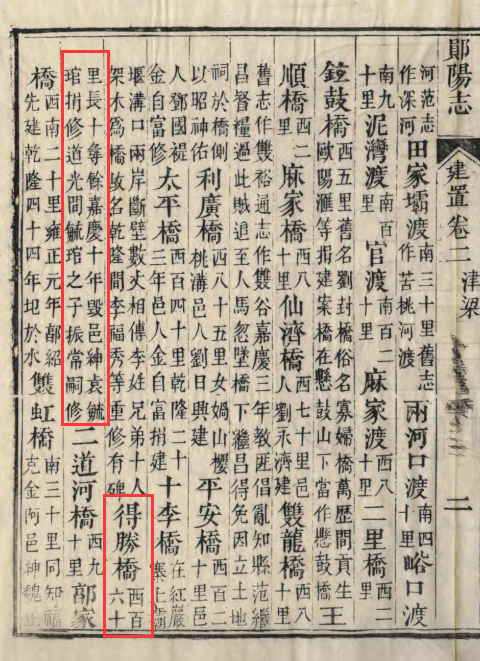 鄖陽志
建置卷二
津梁
二
河范志作深河田家壩渡南三十里舊志作苦桃河渡兩河口渡南四十里峪口渡
南九十里泥灣渡南百十里官渡南百二十里麻家渡西八十里二里橋西二里
鉦鼓橋西五里舊名劉封橋俗名寡婦橋萬歷間貢生歐陽滙等捐建案橋在懸鼓山下當作懸鼓橋王
順橋西二里麻家橋西八十里仙濟橋西七十里邑人劉永濟建雙龍橋西八十里
舊志作雙裕通志作雙谷嘉慶三年教匪倡亂知縣范繼昌督糧過此賊追至人馬忽墜橋下繼昌得免因立土地
祠於橋側以昭神佑利廣橋西八十五里女媧山櫻桃溝邑人劉日興建平安橋西百二十里邑
人鄧國禔金自富修太平橋西百四十里乾隆二十三年邑人金自富捐建十李橋在紅巖寨上霸
堰溝口兩岸斷壁數丈相傳李姓兄弟十人架木為橋故名乾隆間李福秀等重修有碑得勝橋西百六十
里長十夆餘嘉慶十年毀邑紳袁毓琯捐修道光間毓琯之子振常嗣修二道河橋西九十里郭家
橋西南二十里雍正元年郭紹先建乾隆四十四年圯於水雙虹橋南三十里同知福克金阿邑紳魏